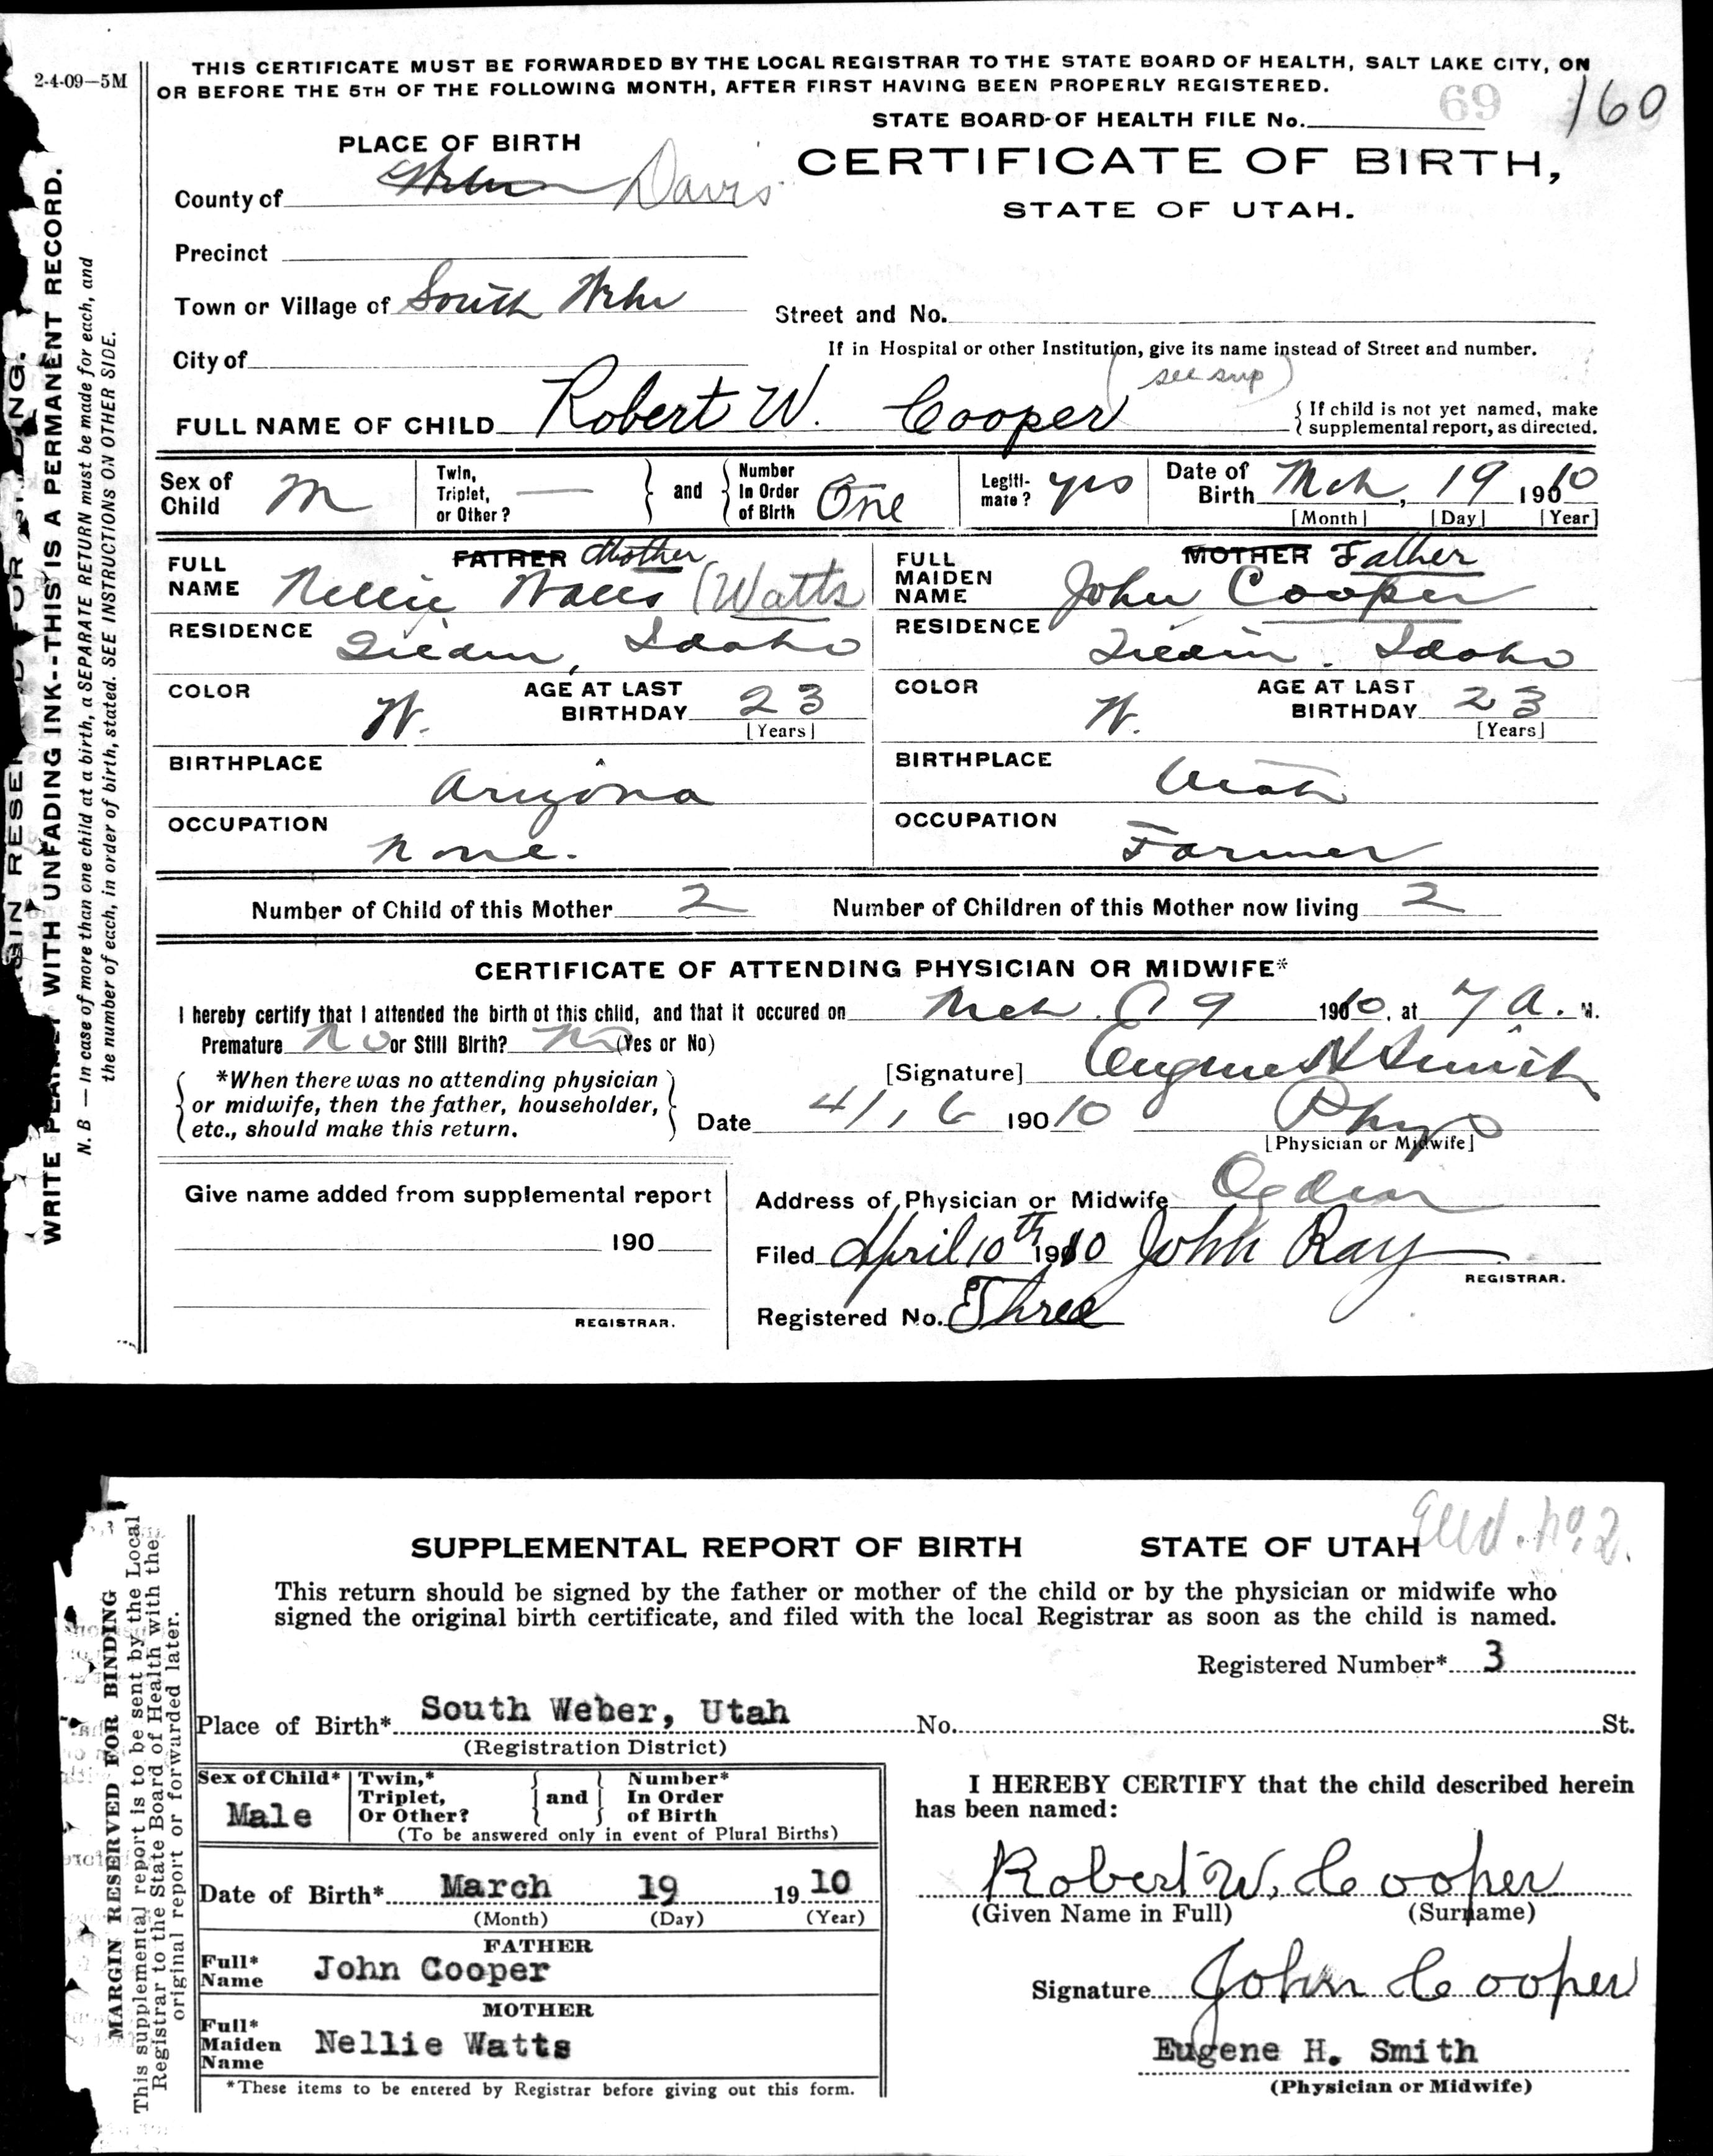 2-4-09—5M
THIS CERTIFICATE MUST BE FORWARDED BY THE LOCAL REGISTRAR TO THE STATE BOARD OF HEALTH, SALT LAKE CITY, ON
OR BEFORE THE 5TH OF THE FOLLOWING MONTH, AFTER FIRST HAVING BEEN PROPERLY REGISTERED.
69 160
STATE BOARD OF HEALTH FILE No.
PLACE OF BIRTH
CERTIFICATE OF BIRTH,
STATE OF UTAH.
County of Weber Davis
Precinct
Town or Village of South Weber
Street and No.
City of
If in Hospital or other Institution, give its name instead of Street and number.
(see sup)
FULL NAME OF CHILD Robert W. Cooper
{If child is not yet named, make
supplemental report, as directed.
Sex of Child M
Twin, Triplet, or Other? —
and
Number In Order of Birth One
Legiti-mate? yes
Date of Birth Mch, 19 19010
[Month] [Day] [Year]
FATHER Mother
FULL NAME Nellie Walls (Watts
RESIDENCE Idaho
COLOR W.
AGE AT LAST BIRTHDAY 23
[Years]
BIRTHPLACE Arizona
OCCUPATION None.
MOTHER Father
FULL MAIDEN NAME John Cooper
RESIDENCE Idaho
COLOR W.
AGE AT LAST BIRTHDAY 23
[Years]
BIRTHPLACE Utah
OCCUPATION Farmer
Number of Child of this Mother 2 Number of Children of this Mother now living 2
CERTIFICATE OF ATTENDING PHYSICIAN OR MIDWIFE*
I hereby certify that I attended the birth of this child, and that it occured on Mch. 19 1910, at 7 A. M.
Premature No or Still Birth? No (Yes or No)
*When there was no attending physician
or midwife, then the father, householder,
etc., should make this return.
[Signature] Eugene H Smith
Date 4/, 6 190 10 Phys
[Physician or Midwife]
Give name added from supplemental report
190
REGISTRAR.
Address of Physician or Midwife Ogden
Filed April 10th 1910 John Ray
REGISTRAR.
Registered No. Three
WRITE PLAINLY WITH UNFADING INK--THIS IS A PERMANENT RECORD.
N. B — In case of more than one child at a birth, a SEPARATE RETURN must be made for each, and
the number of each, in order of birth, stated. SEE INSTRUCTIONS ON OTHER SIDE.
SUPPLEMENTAL REPORT OF BIRTH STATE OF UTAH
This return should be signed by the father or mother of the child or by the physician or midwife who
signed the original birth certificate, and filed with the local Registrar as soon as the child is named.
Registered Number* 3
Place of Birth* South Weber, Utah No. St.
(Registration District)
Sex of Child* Male
Twin,* Triplet, Or Other?
and
Number* In Order of Birth
(To be answered only in event of Plural Births)
Date of Birth* March 19 19 10
(Month) (Day) (Year)
FATHER
Full* Name John Cooper
MOTHER
Full* Maiden Name Nellie Watts
*These items to be entered by Registrar before giving out this form.
I HEREBY CERTIFY that the child described herein
has been named:
Robert W. Cooper
(Given Name in Full) (Surname)
Signature John Cooper
Eugene H. Smith
(Physician or Midwife)
MARGIN RESERVED FOR BINDING
This supplemental report is to be sent by the Local
Registrar to the State Board of Health with the
original report or forwarded later.